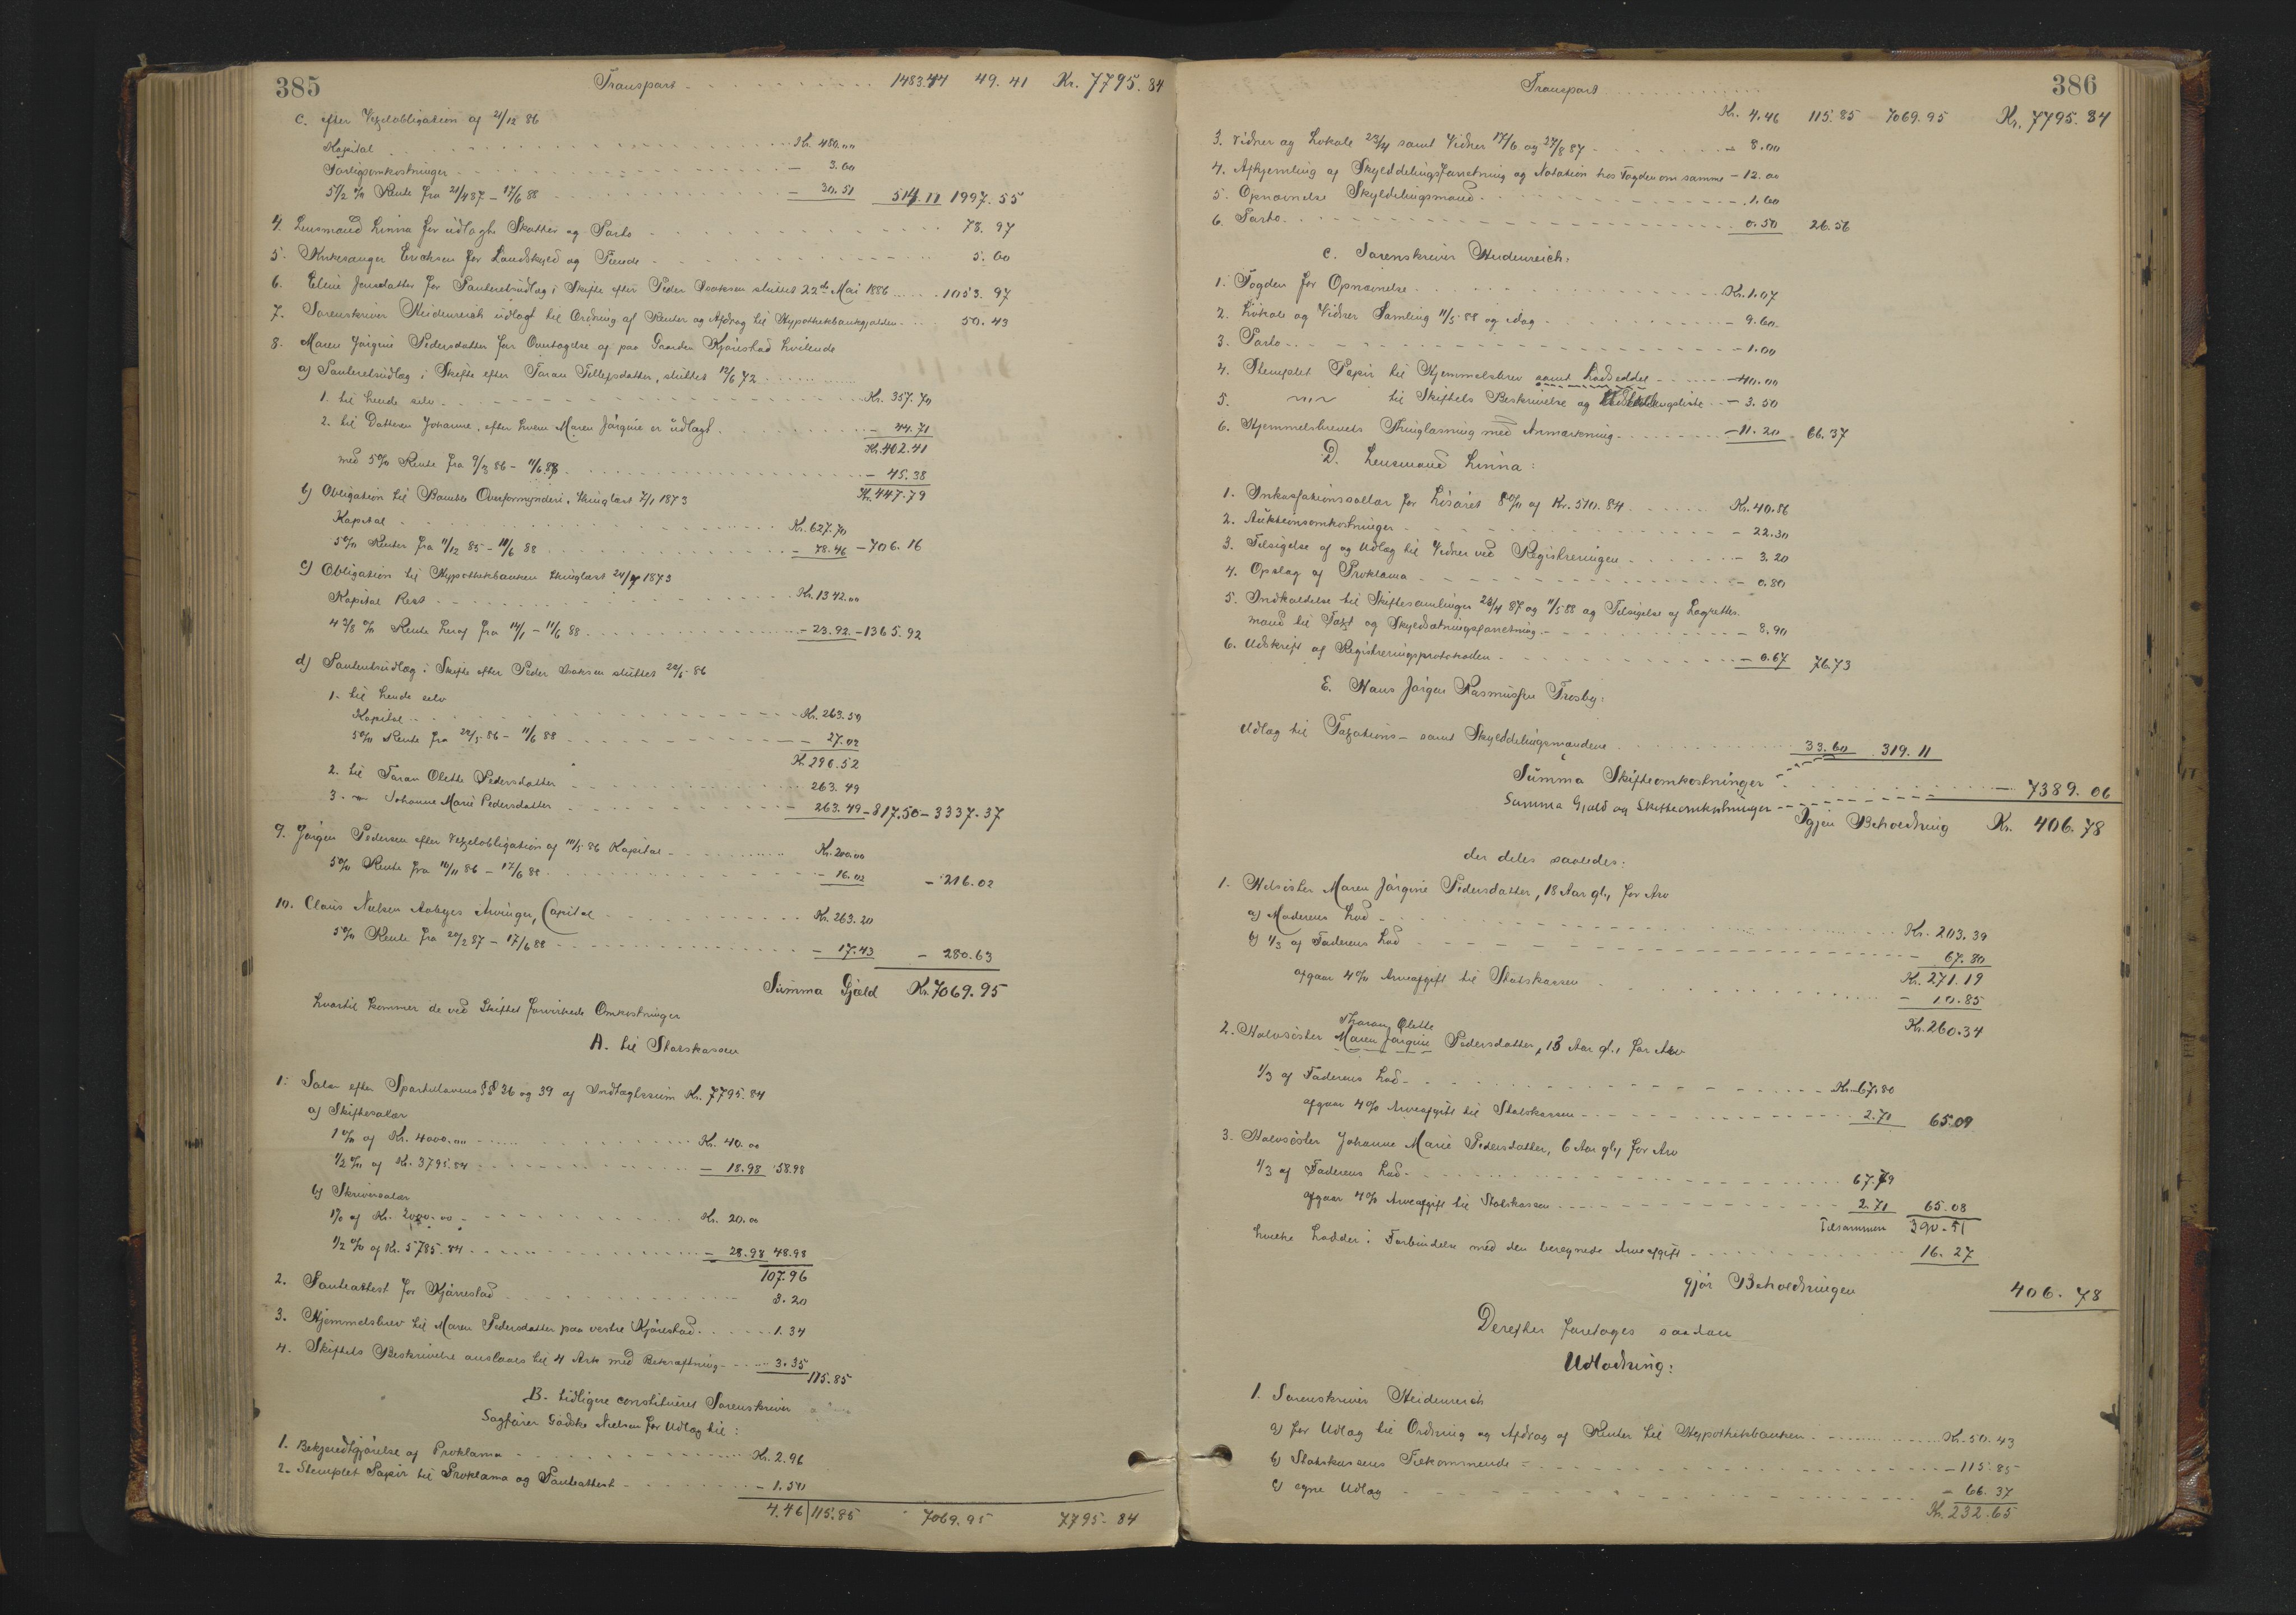 385
Transport 1483.44 49.41 Kr. 7795.84
c. efter Vexelobligation af 21/12 86
Kapital Kr. 480.00
Forligsomkostninger - 3.00
5 1/2 % Rente fra 21/4 87 - 17/6 88 - 30.51 514.11 1997.55
4. Lensmand Linna for udlagte Skatter og Porto 78.97
5. Kirkesanger Erichsen for Landskyld og Tiende 5.00
6. Eline Jensdatter for Panteretsudlag i Skifte efter Peder Isaksen sluttet 22de Mai 1886 1053.97
7. Sorenskriver Heidenreich udlagt til Ordning af Renter og Afdrag til Hypothekbankgjælden 50.43
8. Maren Jørgine Pedersdatter for Overtagelse af paa Gaarden Kjønstad hvilende
a) Panteretsudlæg i Skifte efter Taran Tellefsdatter, sluttet 12/6 72
1. til hende selv Kr. 357.70
2. til Datteren Johanne, efter hvem Maren Jørgine er udlagt - 44.71
Kr. 402.41
med 5 % Rente fra 9/3 86 - 11/6 88 - 45.38
Kr. 447.79
b) Obligation til Bamble Overformynderi, thinglæst 7/1 1873
Kapital Kr. 627.70
5 % Renter fra 11/12 85 - 11/6 88 - 78.46 - 706.16
c) Obligation til Hypothekbanken thinglæst 24/4 1873
Kapital Rest Kr. 1342.00
4 3/8 % Rente heraf fra 14/1 - 11/6 88 - 23.92 - 1365.92
d) Panteretsudlæg i Skifte efter Peder Isaksen sluttet 22/5 86
1. til hende selv
Kapital Kr. 263.50
5 % Rente fra 22/5 86 - 11/6 88 - 27.02
Kr. 290.52
2. til Taran Olette Pedersdatter 263.49
3. " Johanne Marie Pedersdatter - 263.49 - 817.50 - 3337.37
9. Jørgen Pedersen efter Vexelobligation af 11/5 86 Kapital Kr. 200.00
5 % Rente fra 10/11 86 - 17/6 88 - 16.02 - 216.02
10. Claus Nielsen Aabyes Arvinger, Capital Kr. 263.20
5 % Rente fra 20/2 87 - 17/6 88 - 17.43 - 280.63
Summa Gjæld Kr. 7069.95
hvortil kommer de ved Skiftet forvirkede Omkostninger
A. til Statskassen
1. Salær efter Sportellovens §§ 36 og 39 af Indtægtssum Kr. 7795.84
a) Skiftesalær
1 % af Kr. 4000.00 Kr. 40.00
1/2 % af Kr. 3795.84 - 18.98 58.98
b) Skriversalær
1 % af Kr. 2000.00 Kr. 20.00
1/2 % af Kr. 5795.84 - 28.98 48.98
107.96
2. Panteattest for Kjønstad 3.20
3. Hjemmelsbrev til Maren Pedersdatter paa vestre Kjønstad 1.34
4. Skiftets Beskrivelse anslaaes til 4 Ark med Bekræftning 3.35
115.85
B. tidligere constitueret Sorenskriver
Sagfører Godske Nielsen for Udlæg til:
1. Bekjendtgjørelse af Proklama Kr. 2.96
2. Stemplet Papir til Proklama og Panteattest - 1.50
4.46 115.85 7069.95 7795.84
386
Transport
Kr. 4.46 115.85 7069.95 Kr. 7795.84
3. Vidner og Lokale 23/4 samt Vidner 17/6 og 27/8 87 - 8.00
4. Afhjemling af Skylddelingsforretning og Notation hos Fogden om samme - 12.00
5. Opnævnelse Skylddelingsmænd - 1.60
6. Porto 0.50 26.56
C. Sorenskriver Heidenreich:
1. Fogden for Opnævnelse Kr. 1.07
2. Lokale og Vidner Samling 11/5 88 og idag - 9.60
3. Porto - 1.00
4. Stemplet Papir til Hjemmelsbrev samt Lodseddel - 40.00
5. til Skiftets Beskrivelse og - 3.50
6. Hjemmelsbrevets Thinglæsning med Anmærkning - 11.20 66.37
D. Lensmand Linna:
1. Inkassationssallær for Løsøret 8 % af Kr. 510.84 Kr. 40.86
2. Auktionsomkostninger - 22.30
3. Tilsigelse af og Udlæg til Vidner ved Registreringen - 3.20
4. Opslag af Proklama - 0.80
5. Indkaldelse til Skiftesamlinger 23/4 87 og 11/5 88 og Tilsigelse af Lagrettes-
mænd til Taxt og Skyldsætningsforretning - 8.90
6. Udskrift af Registreringsprotokollen - 0.67 76.73
E. Hans Jørgen Rasmussen Trosby:
Udlæg til Taxations- samt Skylddelingsmændene 33.60 319.11
Summa Skifteomkostninger
Summa Gjæld og Skifteomkostninger - 7389.06
Igjen Beholdning Kr. 406.78
der deles saaledes:
1. Helsøster Maren Jørgine Pedersdatter, 18 Aar gl., for Arv
a) Moderens Lod Kr. 203.39
b) 1/3 af Faderens Lod - 67.80
Kr. 271.19
afgaar 4 % Arveafgift til Statskassen - 10.85
Kr. 260.34
Tharan Olette
2. Halvsøster Maren Jørgine Pedersdatter, 13 Aar gl., for Arv
1/3 af Faderens Lod Kr. 67.80
afgaar 4 % Arveafgift til Statskassen 2.71 65.09
3. Halvsøster Johanne Marie Pedersdatter, 6 Aar gl., for Arv
1/3 af Faderens Lod 67.79
afgaar 4 % Arveafgift til Statskassen 2.71 65.08
Tilsammen 390.51
hvilke Lodder i Forbindelse med den beregnede Arveafgift 16.27
gjør Beholdningen 406.78
Derefter foretages saadan
Udlodning:
1. Sorenskriver Heidenreich
a) for Udlæg til Ordning og Afdrag af Renter til Hypothekbanken Kr. 50.43
b) Statskassens Tilkommende - 115.85
c) egne Udlæg - 66.37
Kr. 232.65